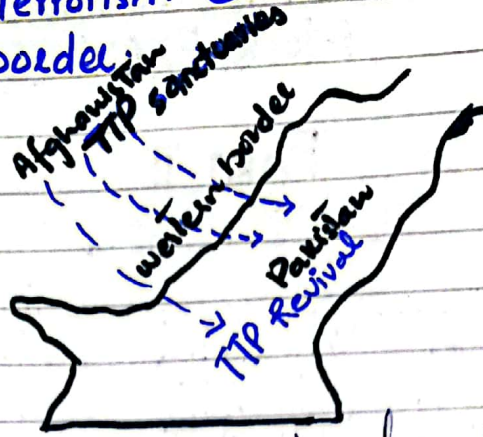 terrorism
border.
Afghanistan
TTP sanctuaries
western border
Pakistan
TTP Revival